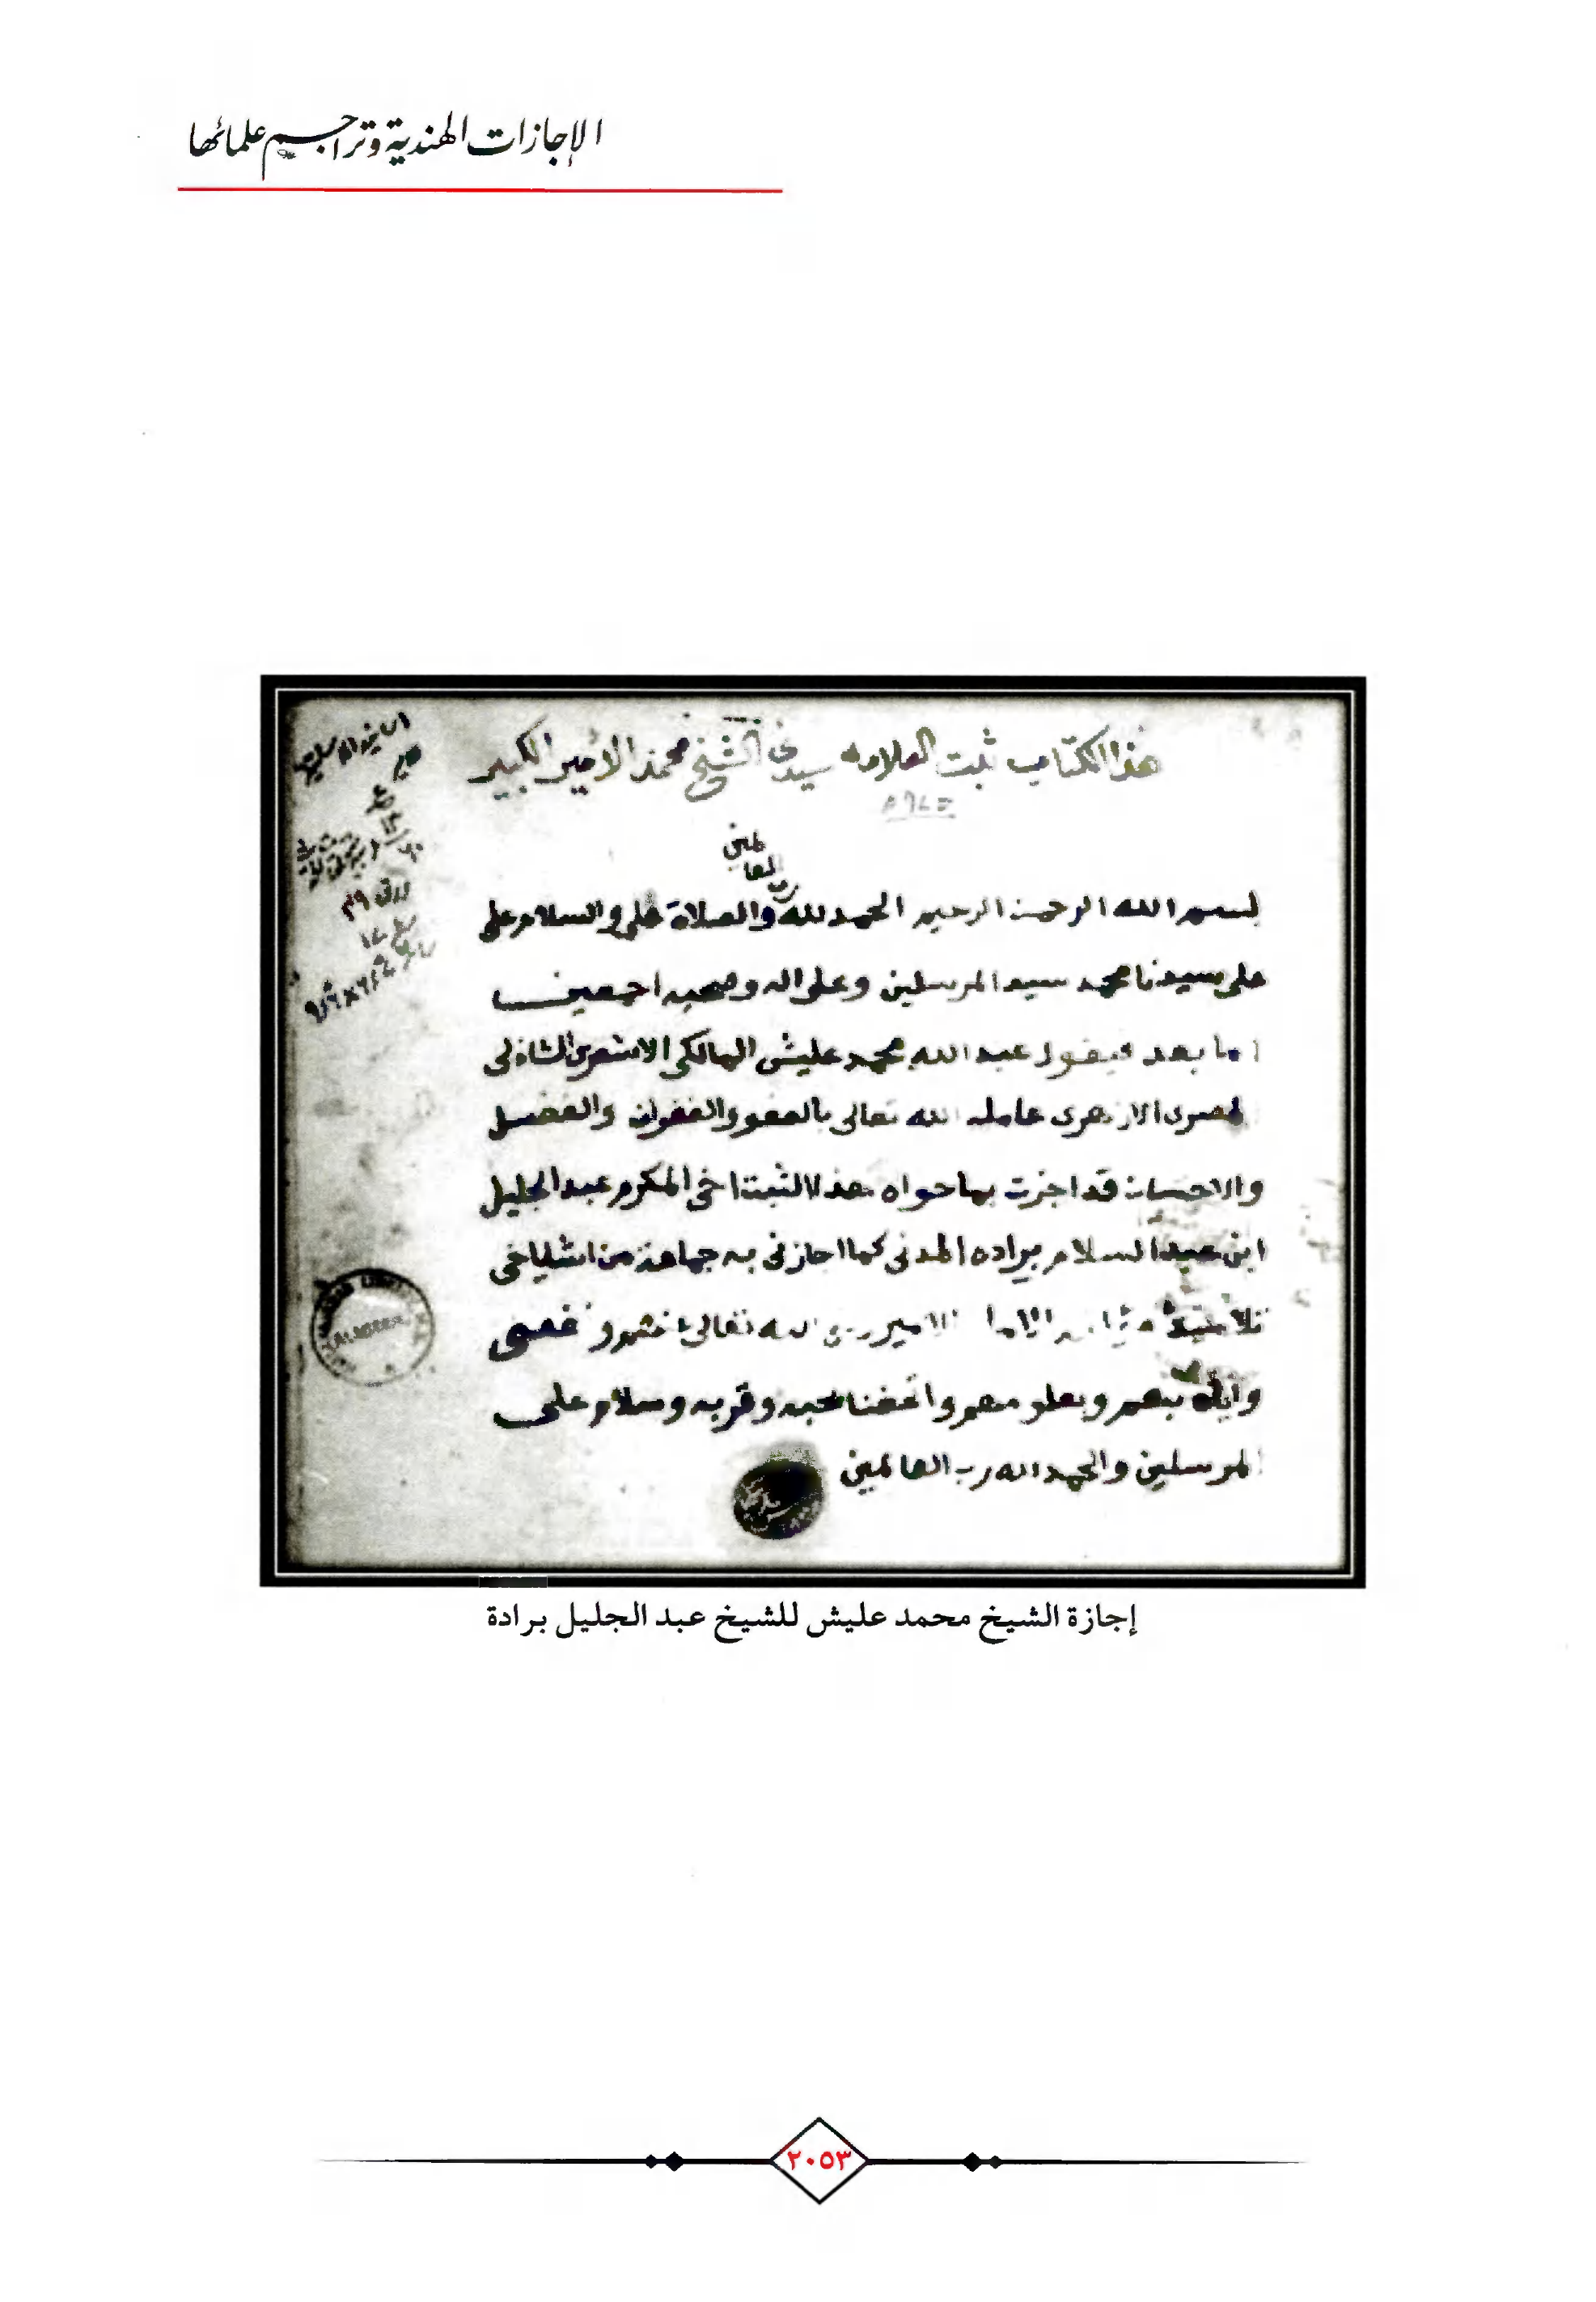 الإجازات الهندية وتراجم علمائها
هذا الكتاب ثبت العلامه سيدي الشيخ محمد الأمير الكبير
رب العالمين
بسم الله الرحمن الرحيم الحمد لله والصلاة على والسلام على
على سيدنا محمد سيد المرسلين وعلى اله وصحبه اجمعين
اما بعد فيقول عبد الله محمد عليش المالكي الاشعري الشاذلي
المصرى الازهرى عامله الله تعالى بالعفو والغفران والفضل
والاحسان قد اجزت بما حواه هذا الثبت اخي المكرم عبد الجليل
ابن عبد السلام براده المدني كما اجازني به جماعة من اشياخي
تلامذة الامير الله تعالى عنهم ونفعني
واياه بهم وبعلومهم واتحفنا بحبه وقربه وسلام على
المرسلين والحمد لله رب العالمين
إجازة الشيخ محمد عليش للشيخ عبد الجليل برادة
٢٠٥٣